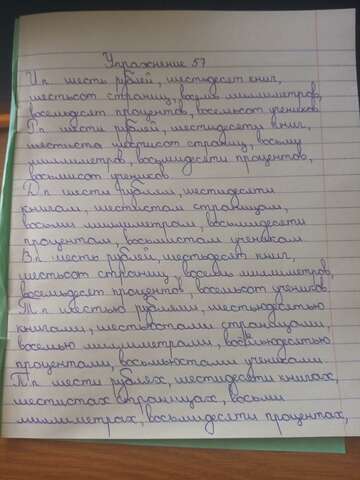 Упражнение 57
И.п. шесть рублей, шестьдесят книг,
шестьсот страниц, восемь миллиметров,
восемьдесят процентов, восемьсот учеников
Р.п. шести рублей, шестидесяти книг,
шестисот страниц, восьми
миллиметров, восьмидесяти процентов,
восьмисот учеников
Д.п. шести рублям, шестидесяти
книгам, шестистам страницам,
восьми миллиметрам, восьмидесяти
процентам, восьмистам ученикам
В.п. шесть рублей, шестьдесят книг,
шестьсот страниц, восемь миллиметров,
восемьдесят процентов, восемьсот учеников
Т.п. шестью рублями, шестьюдесятью
книгами, шестьюстами страницами,
восемью миллиметрами, восьмьюдесятью
процентами, восьмьюстами учениками
П.п. шести рублях, шестидесяти книгах,
шестистах страницах, восьми
миллиметрах, восьмидесяти процентах,